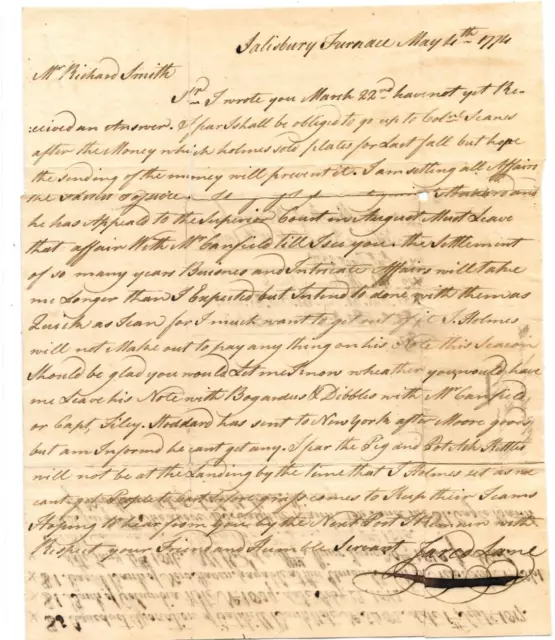 Salisbury Furnace May 4th 1774
Mr Richard Smith
Sr I wrote you March 22nd have not yet Re-
ceived an Answer. I fear I shall be obliged to go up to Colo.
after the Money which holmes sold plates for Last fall but hope
the sending of the money will prevent it. I am setling all Affairs
the and
he has Appeald to the Superior Court in August Must Leave
that affair With Mr Canfield till I see you. the Settlement
of so many years Buisnes and Intricate Affairs will take
me Longer than I Expected but Intend to done with them as
Quick as I can for I much want to get out of it J. Holmes
will not Make out to pay any thing on his Note this Season
Should be glad you would Let me know wheather you would have
me Leave his Note with Bogardus & Dibbles with Mr Canfield
or Capt. Stoddard has sent to New York after Moore goods
but am Informd he cant get any. I fear the Pig and Pot Ash Kettles
will not be at the Landing by the time that J Holmes set as we
cant get People to Cart before grass comes to Keep their Teams
Hoping to hear from you by the Next Post I Remain with
Respect your Friend and Humble Servant Jared Lane